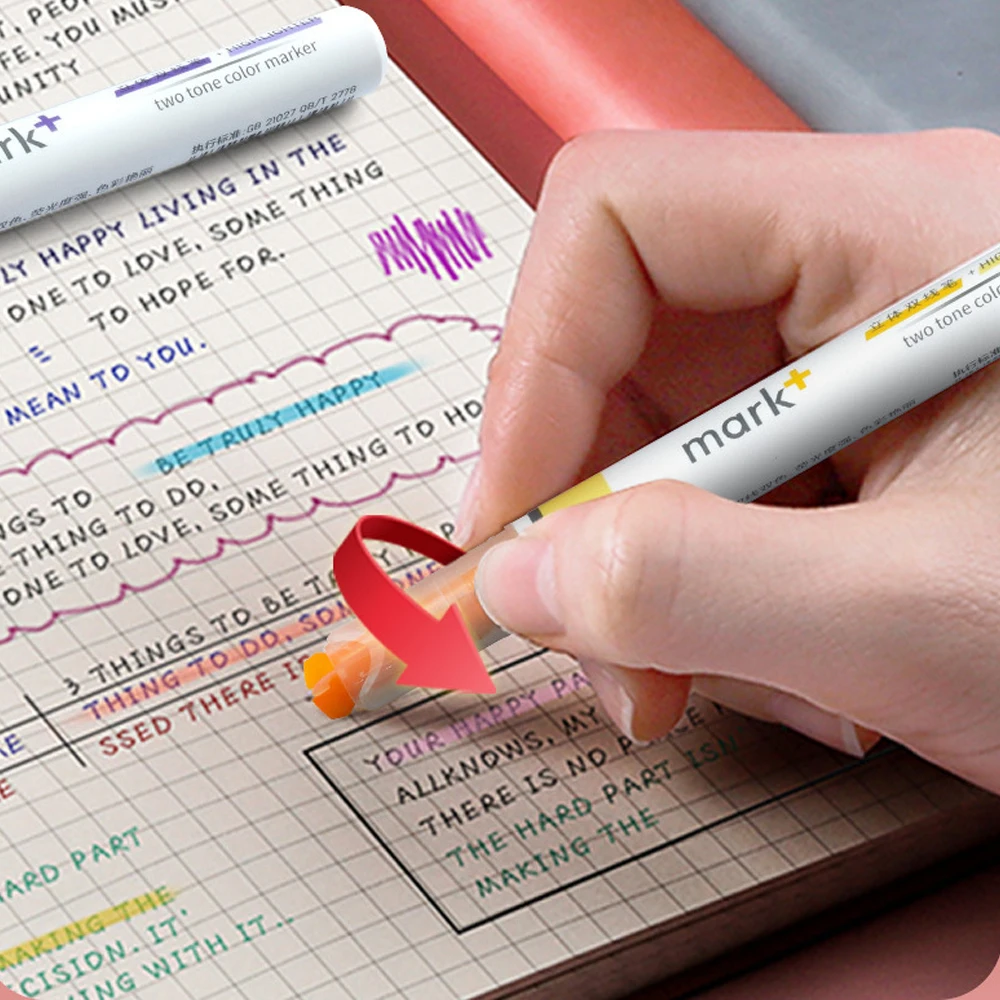 FE. YOU MUST
UNITY
two tone color marker
rk+
执行标准:GB 21027 QB/T 2778
LY HAPPY LIVING IN THE
ONE TO LOVE, SOME THING
TO HOPE FOR.
MEAN TO YOU.
BE TRULY HAPPY
NGS TO
THING TO DO,
ONE TO LOVE, SOME THING TO HO
3 THINGS TO BE
THING TO DO, SOM
SSED THERE IS
YOUR HAPPY PA
ALLKNOWS, MY
THERE IS NO
THE HARD PART ISN
MAKING THE
ARD PART
MAKING THE
ECISION. IT'
NG WITH IT..
立体双线笔
two tone color
mark+